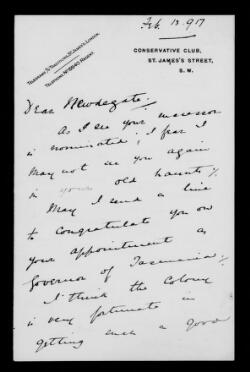 Feb. 13. 917
TELEGRAMS &
TELEPHONE Nº 6640 REGENT.
CONSERVATIVE CLUB,
ST. JAMES'S STREET,
S. W.
Dear Newdegate.
As I see your successor
is nominated; I fear I
may not see you again
in your old haunts;
May I send a line
to congratulate you on
your appointment as
Governor of Tasmania;
I think the Colony
is very fortunate in
getting such a good